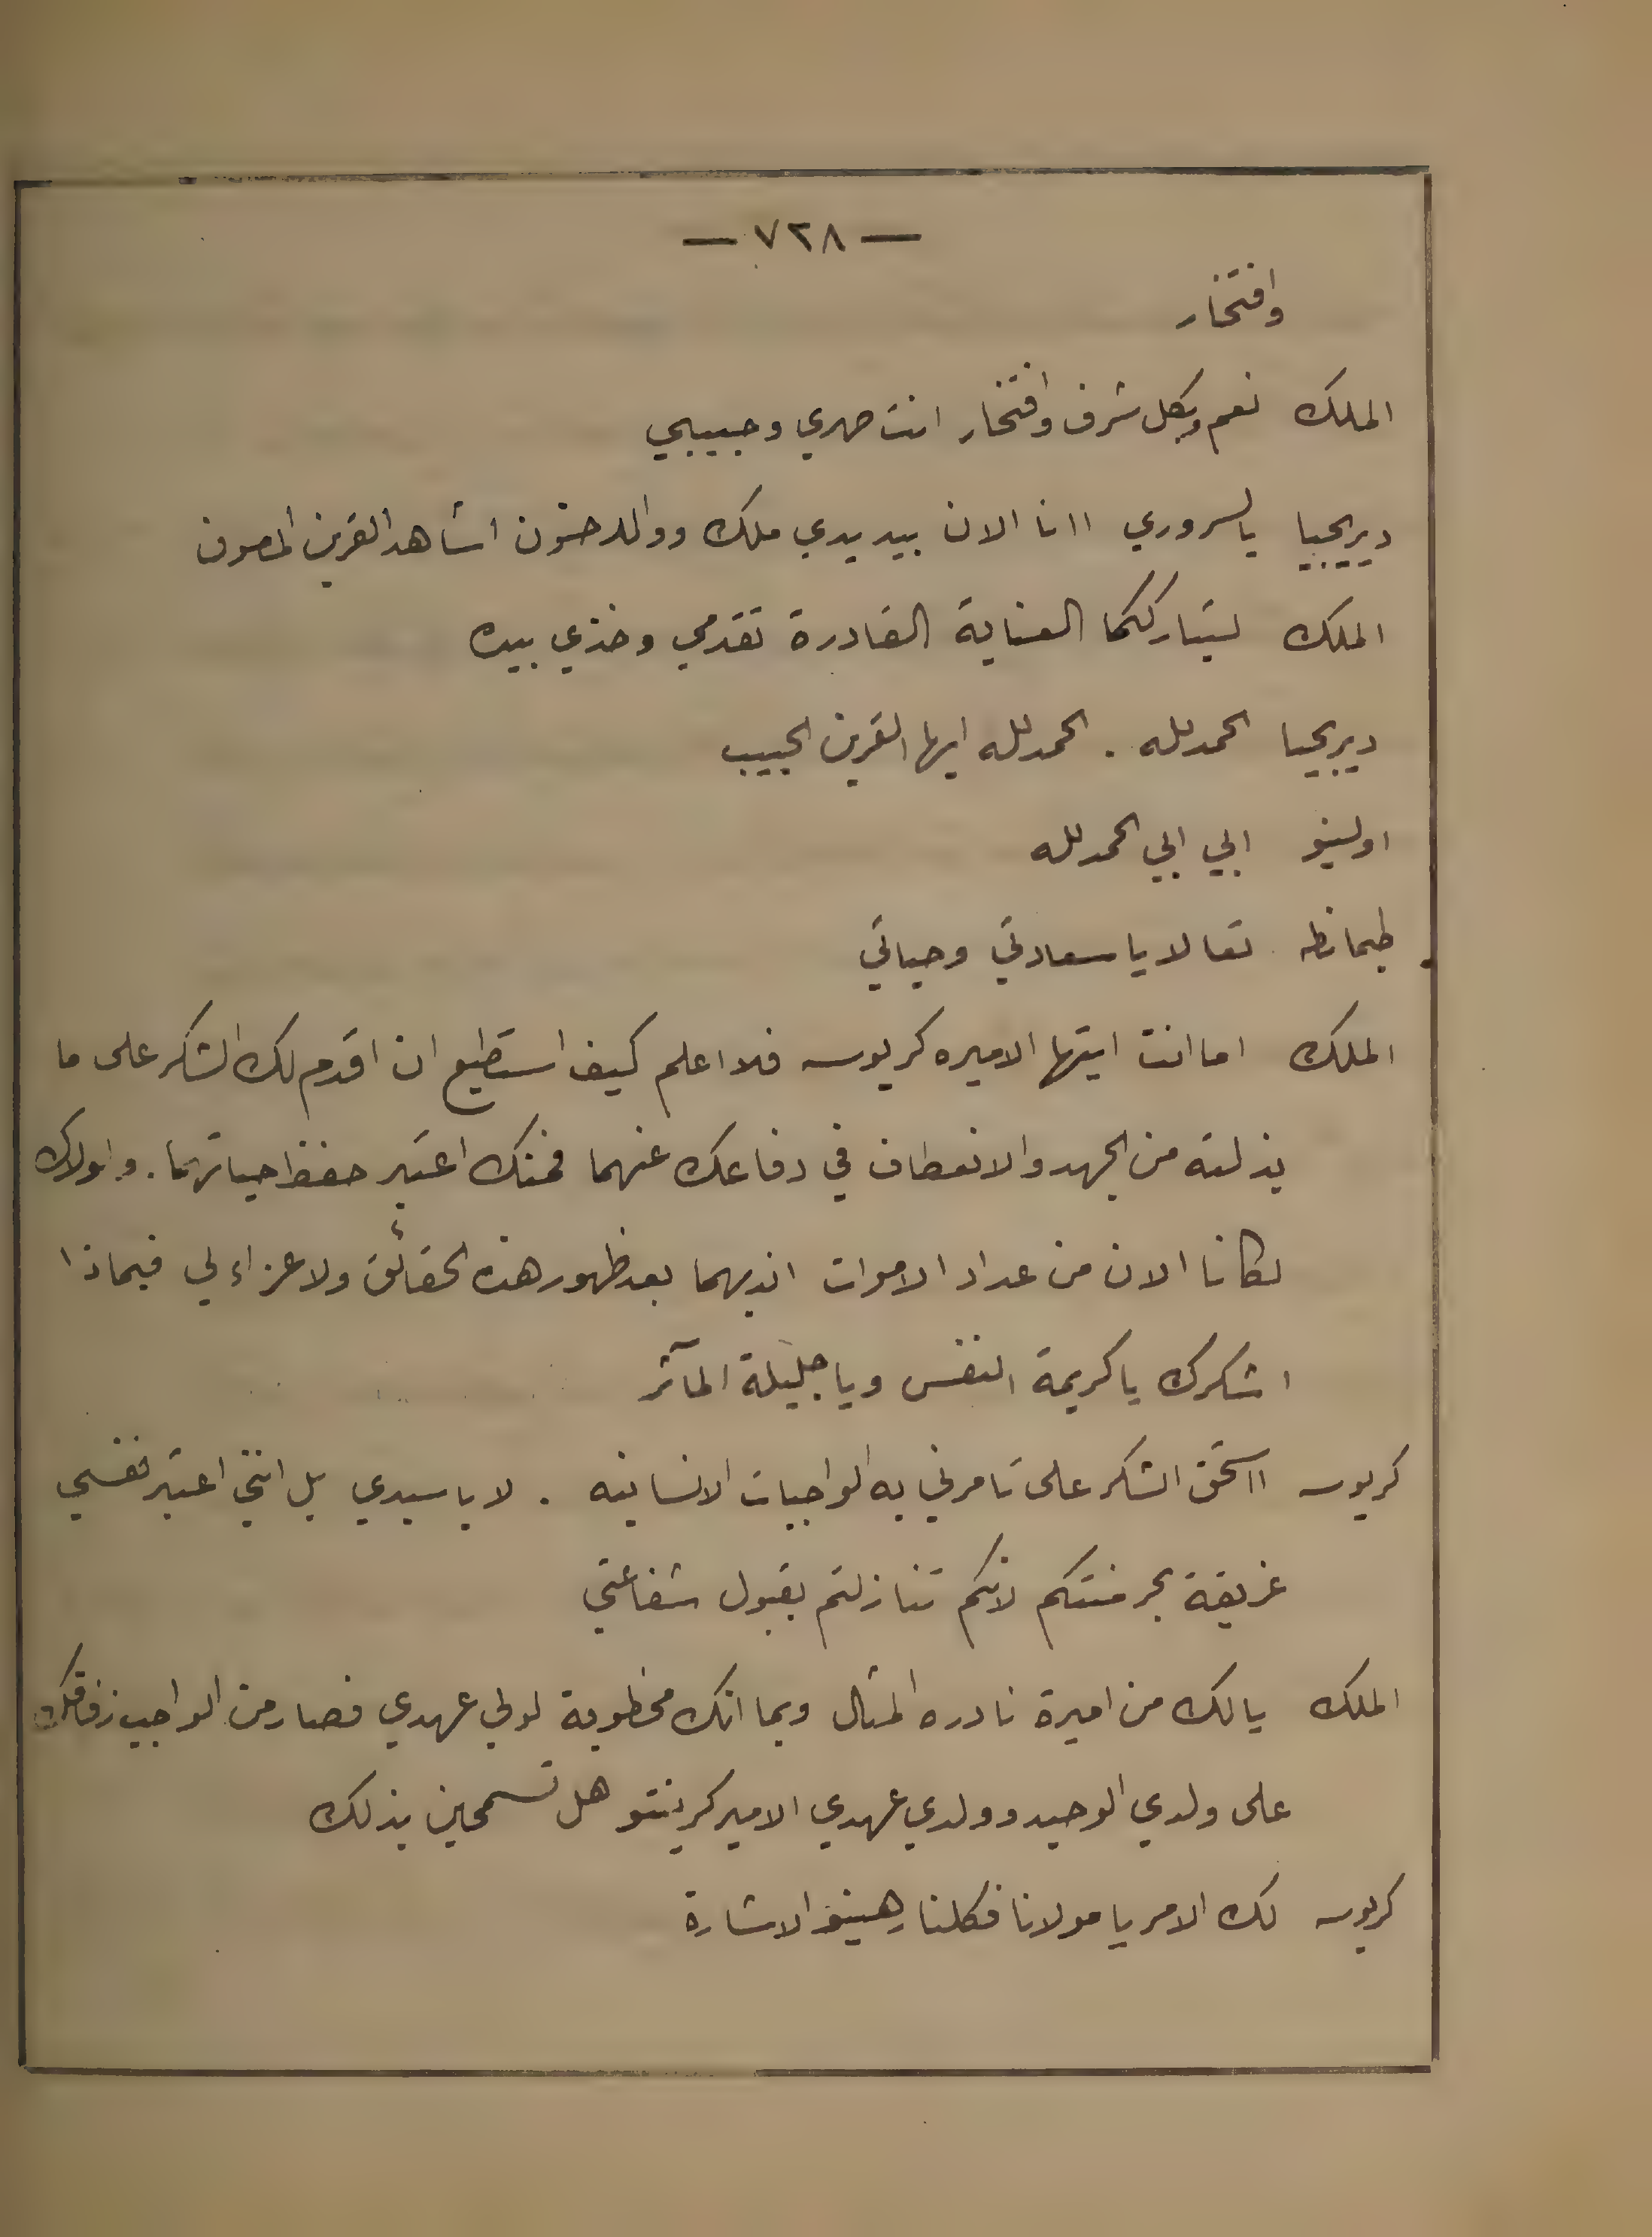 — ٧٢٨ —
وافتخار
الملك نعم وبكل شرف وافتخار انت صهري وحبيبي
ديريجيا يالسروري اانا الان بيد يدي ملك ووالد حنون اشاهد القرين المصون
الملك لتبارككما العناية القادرة تقدمي وخذي بيده
ديريجيا الحمدلله . الحمدلله ايها القرين الحبيب
اولينو ابي ابي الحمدلله
طيمانطه تعالا يا سعادتي وحياتي
الملك اما انت ايتها الاميره كريوسه فلا اعلم كيف استطيع ان اقدم لك الشكر على ما
بذلته من الجهد والانعطاف في دفاعك عنهما فمنك اعتبر حفظ حياتهما . ولولاك
لكانا الان من عداد الاموات اندبهما بعد ظهور هذه الحقائق ولا عزاء لي فبماذا
اشكرك يا كريمة النفس ويا جليلة المآثر
كريوسه ااستحق الشكر على تامرني به الواجبات الانسانيه . لا يا سيدي بل انني اعتبر نفسي
غريقة بحر منتكم لانكم تنازلتم بقبول شفاعتي
الملك يالك من اميرة نادره المثال وبما انك مخطوبة لولي عهدي فصار من الواجب زفافك
على ولدي الوحيد وولدي عهدي الامير كرينتو هل تسمحين بذلك
كريوسه لك الامر يا مولانا فكلنا رهين الاشارة